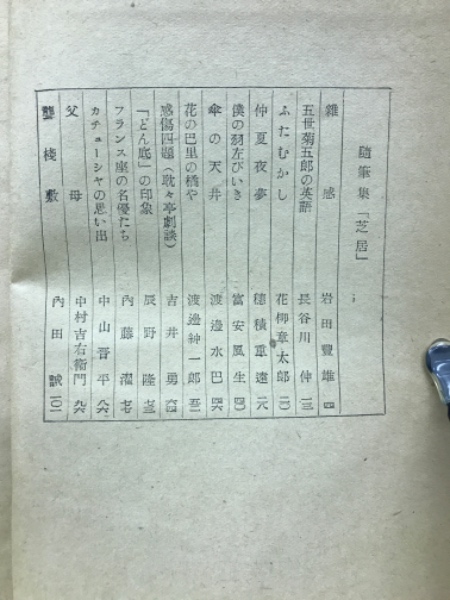 隨筆集「芝居」
雜感 岩田豐雄 四
五世菊五郎の英語 長谷川伸 一三
ふたむかし 花柳章太郎 二〇
仲夏夜夢 穗積重遠 二八
僕の羽左びいき 富安風生 四〇
傘の天井 渡邊水巴 四六
花の巴里の橘や 渡邊紳一郎 五二
感傷四題（耽々亭劇談） 吉井勇 六四
「どん底」の印象 辰野隆 七三
フランス座の名優たち 內藤濯 七七
カチューシャの思い出 中山晋平 八六
父母 中村吉右衞門 九六
聾棧敷 內田誠 一〇一